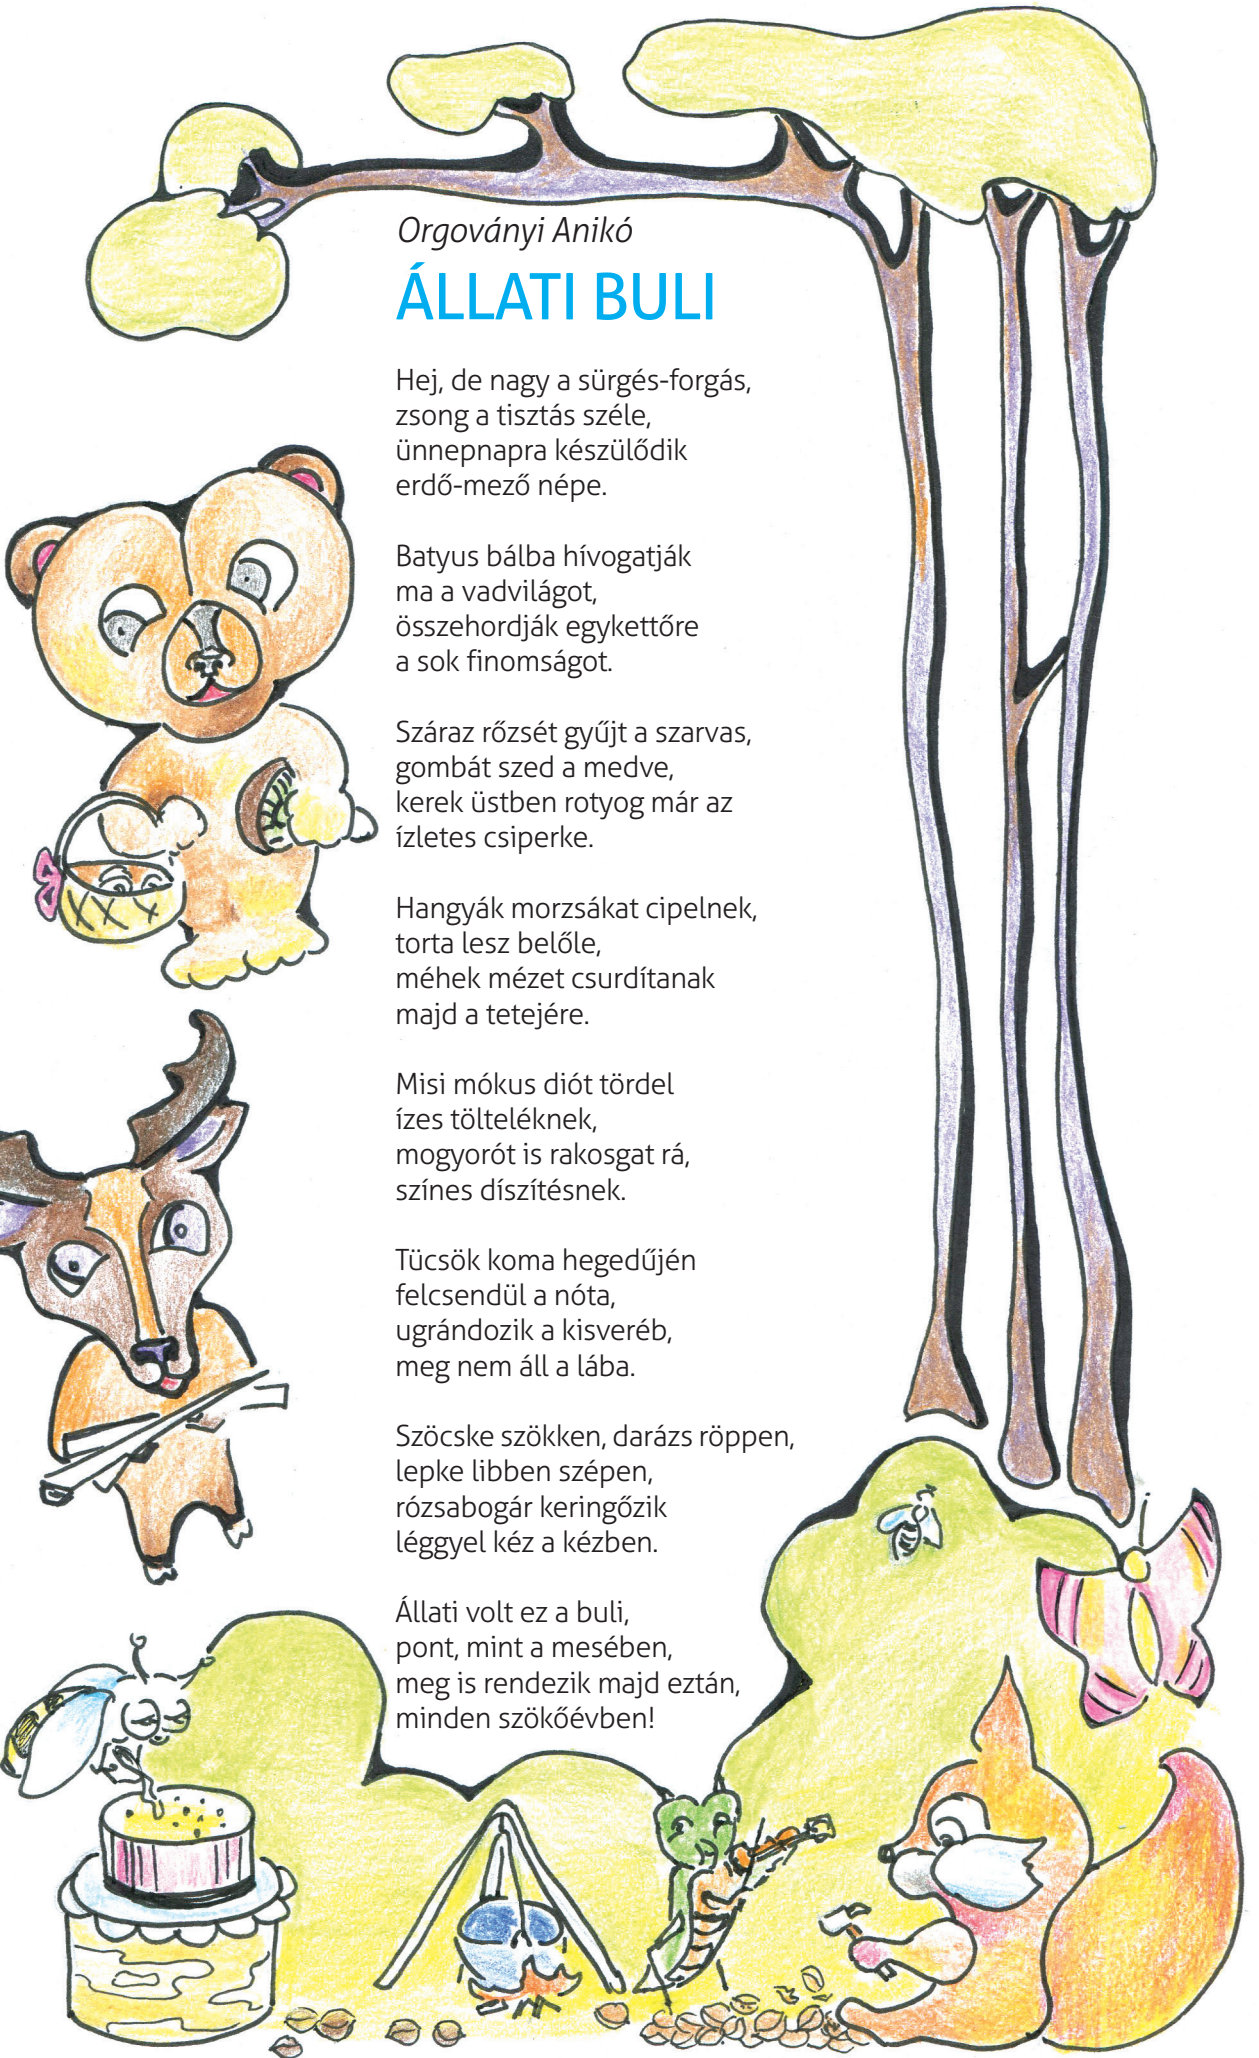 Orgoványi Anikó
ÁLLATI BULI
Hej, de nagy a sürgés-forgás,
zsong a tisztás széle,
ünnepnapra készülődik
erdő-mező népe.
Batyus bálba hívogatják
ma a vadvilágot,
összehordják egykettőre
a sok finomságot.
Száraz rőzsét gyűjt a szarvas,
gombát szed a medve,
kerek üstben rotyog már az
ízletes csiperke.
Hangyák morzsákat cipelnek,
torta lesz belőle,
méhek mézet csurdítanak
majd a tetejére.
Misi mókus diót tördel
ízes tölteléknek,
mogyorót is rakosgat rá,
színes díszítésnek.
Tücsök koma hegedűjén
felcsendül a nóta,
ugrándozik a kisveréb,
meg nem áll a lába.
Szöcske szökken, darázs röppen,
lepke libben szépen,
rózsabogár keringőzik
léggyel kéz a kézben.
Állati volt ez a buli,
pont, mint a mesében,
meg is rendezik majd eztán,
minden szökőévben!